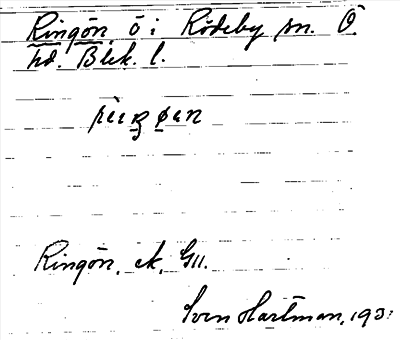 Ringön ö i Rödeby sn. Ö.
hd. Blek. l.
Ringön, ek, G11.
Sven Hartman, 193